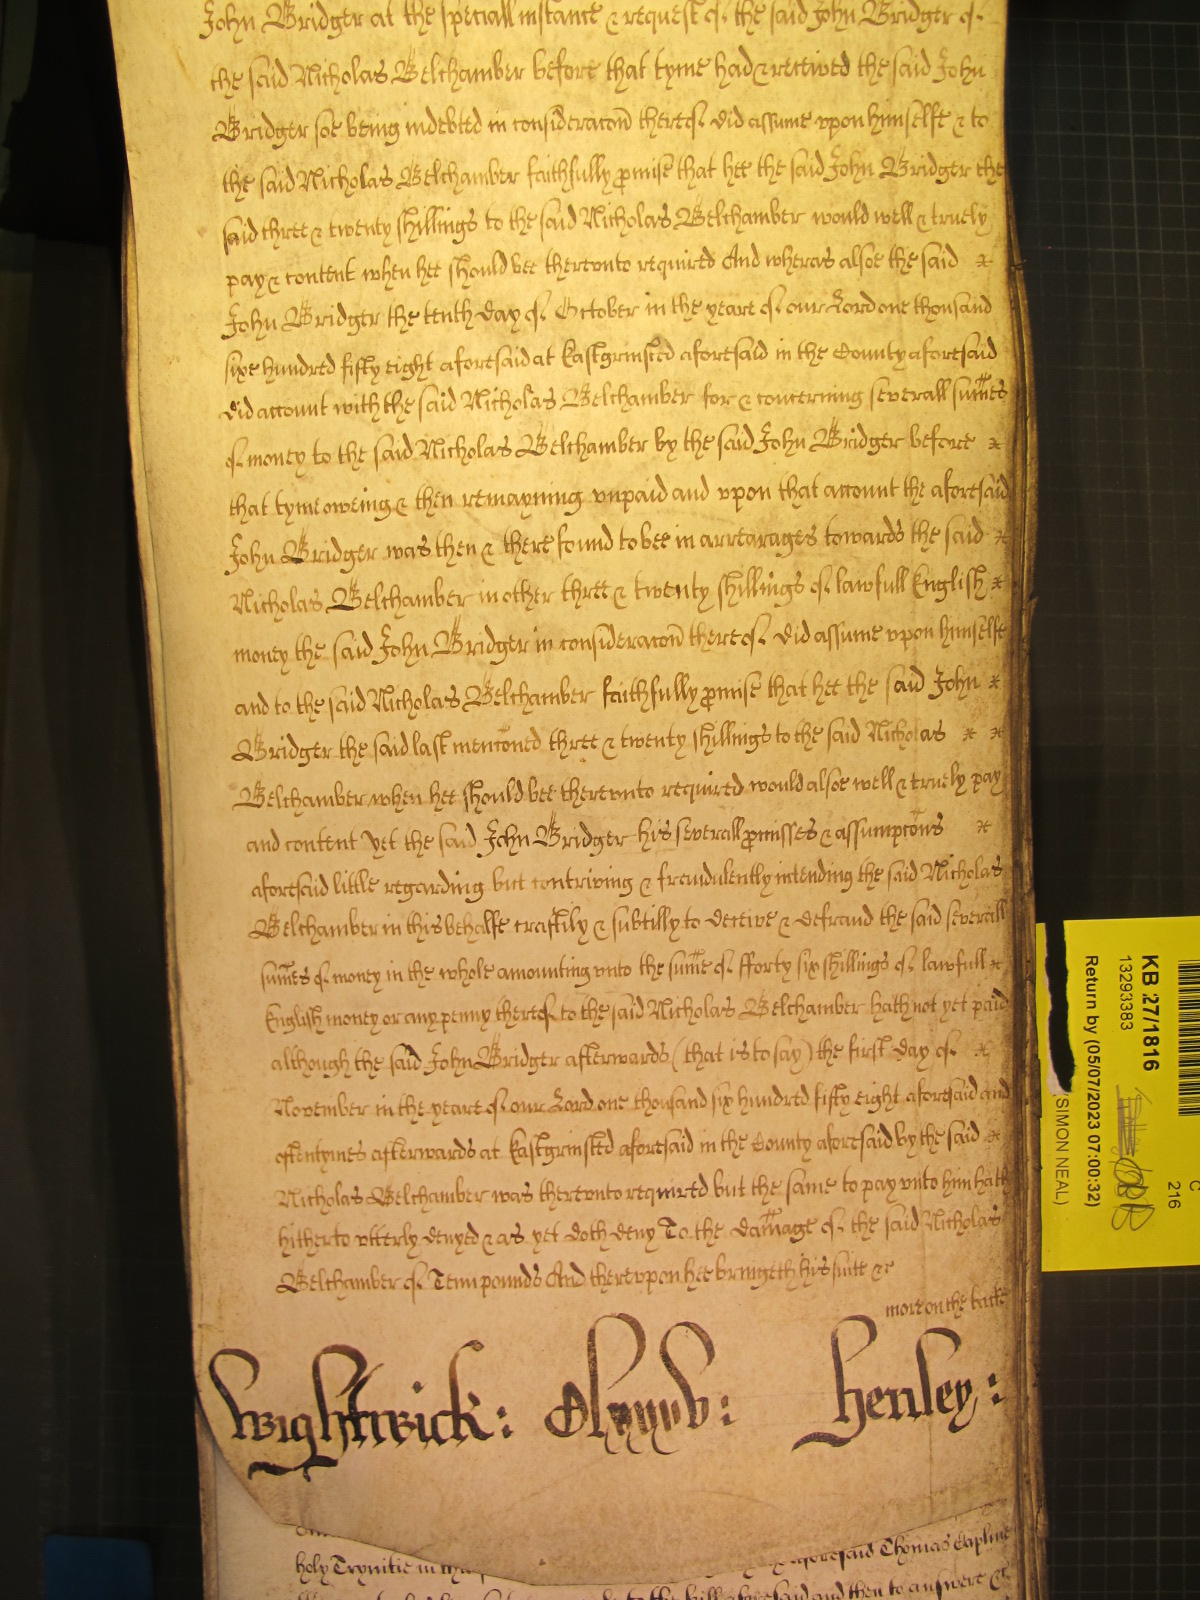 John Bridger at the speciall instance & request of the said John Bridger of
the said Nicholas Belchamber before that tyme had & received the said John
Bridger soe being indebted in consideracon thereof did assume vpon himselfe & to
the said Nicholas Belchamber faithfully pmise that hee the said John Bridger the
said three & twenty shillings to the said Nicholas Belchamber would well & truely
pay & content when hee should bee therevnto required And wheras alsoe the said
John Bridger the tenth day of October in the yeare of our Lord one thousand
sixe hundred fifty eight aforesaid at Eastgrinsted aforesaid in the County aforesaid
did account with the said Nicholas Belchamber for & concerning severall sumes
of money to the said Nicholas Belchamber by the said John Bridger before
that tyme oweing & then remayning vnpaid and vpon that account the aforesaid
John Bridger was then & there found to bee in arrearages towards the said
Nicholas Belchamber in other three & twenty shillings of lawfull English
money the said John Bridger in consideracon thereof did assume vpon himselfe
and to the said Nicholas Belchamber faithfully pmise that hee the said John
Bridger the said last menconed three & twenty shillings to the said Nicholas
Belchamber when hee should bee therevnto required would alsoe well & truely pay
and content Yet the said John Bridger his severall pmisses & assumpcons
aforesaid little regarding but contriving & fraudulently intending the said Nicholas
Belchamber in this behalfe craftily & subtilly to deceive & defraud the said severall
sumes of money in the whole amounting vnto the sume of fforty six shillings of lawfull
English money or any penny thereof to the said Nicholas Belchamber hath not yet paid
although the said John Bridger afterwards (that is to say) the first day of
November in the yeare of our Lord one thousand six hundred fifty eight aforesaid and
oftentymes afterwards at Eastgrinsted aforesaid in the County aforesaid by the said
Nicholas Belchamber was therevnto required but the same to pay vnto him hath
hitherto vtterly denyed & as yet doth deny To the damage of the said Nicholas
Belchamber of Tenn pounds And therevpon hee bringeth his suite &c
more on the backe
Wightwick: Henley:
holy Trynitie in aforesaid Thomas
bill aforesaid and then to answere
KB 27/1816
13293383
Return by (05/07/2023 07:00:32)
(SIMON NEAL)
C
216